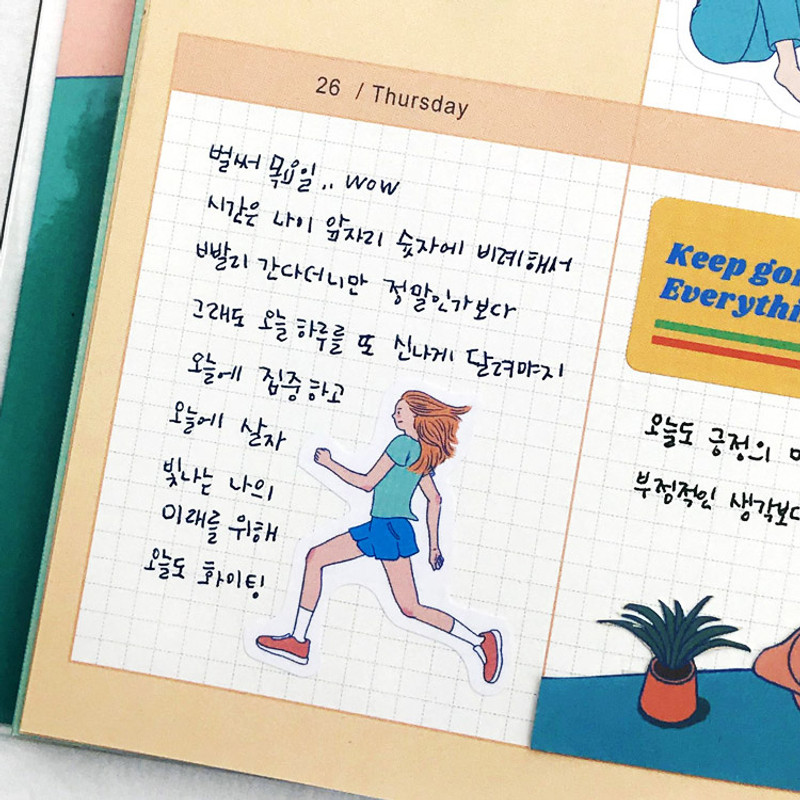 26 / Thursday
벌써 목요일.. wow
시간은 나이 앞자리 숫자에 비례해서
빨리 간다더니만 정말인가보다
그래도 오늘 하루를 또 신나게 달려야지
오늘에 집중하고
오늘에 살자
빛나는 나의
미래를 위해
오늘도 화이팅
Keep goi
Everythi
오늘도 긍정의
부정적인 생각보다